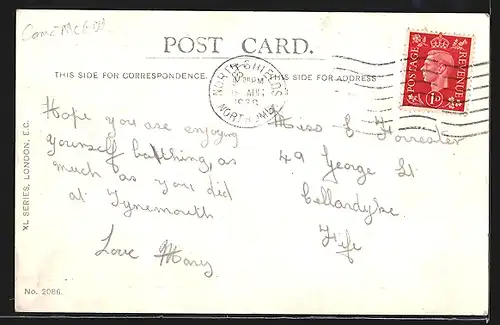 Comic McGill
POST CARD.
THIS SIDE FOR CORRESPONDENCE.
THIS SIDE FOR ADDRESS
NORTH SHIELDS
PM
AUG
NORTHUMB
POSTAGE
REVENUE
1D
Hope you are enjoying
yourself bathing, as
much as you did
at Tynemouth
Love Mary
Miss E Forrester
49 George St
Cellardyke.
Fife
XL SERIES, LONDON, E.C.
No. 2086.